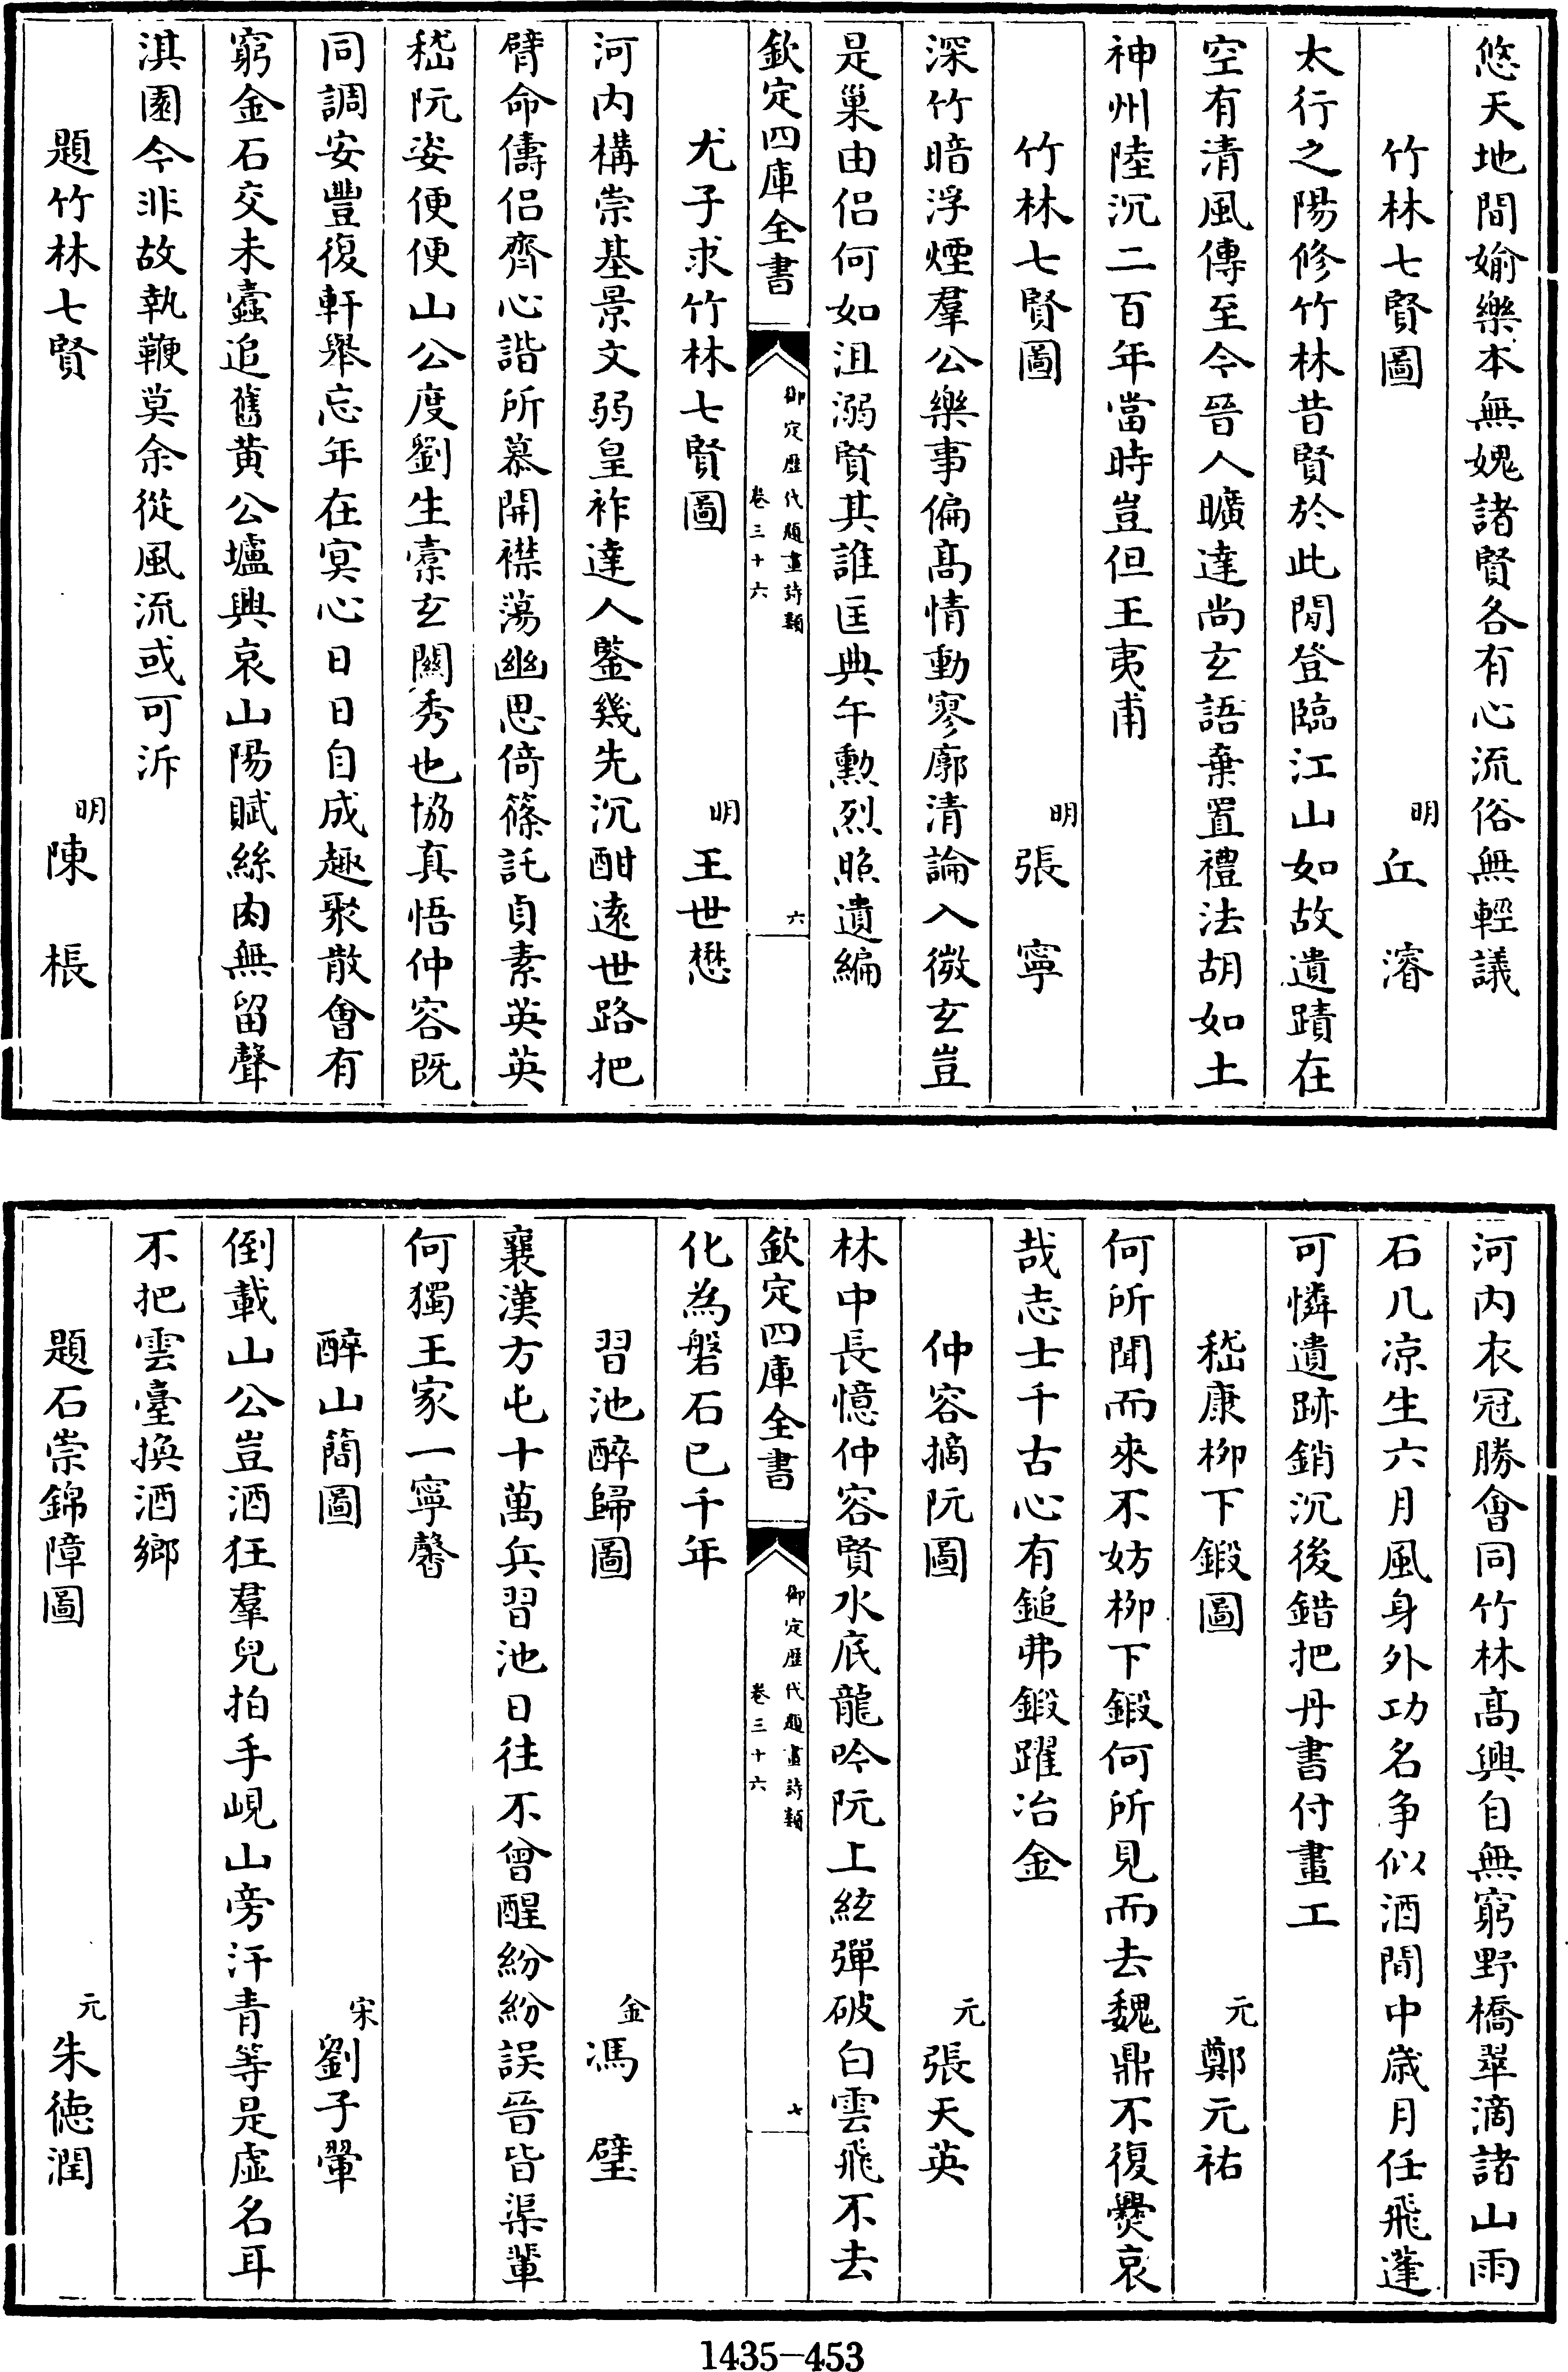 悠天地間婾樂本無媿諸賢各有心流俗無輕議
竹林七賢圖 明 丘濬
太行之陽修竹林昔賢於此閒登臨江山如故遺蹟在
空有清風傳至今晉人曠達尚玄語棄置禮法胡如土
神州陸沉二百年當時豈但王夷甫
竹林七賢圖 明 張寧
深竹暗浮煙羣公樂事偏高情動寥廓清論入微玄豈
是巢由侶何如沮溺賢其誰匡典午勲烈照遺編
欽定四庫全書 御定歴代題畫詩類 卷三十六 六
尤子求竹林七賢圖 明 王世懋
河内構崇基景文弱皇祚達人鑒幾先沉酣遠世路把
臂命儔侣齊心諧所慕開襟蕩幽思倚篠託貞素英英
嵇阮姿便便山公度劉生橐玄關秀也協真悟仲容既
同調安豐復軒舉忘年在冥心日日自成趣聚散會有
窮金石交未蠧追舊黄公壚興哀山陽賦絲肉無留聲
淇園今非故執鞭莫余從風流或可泝
題竹林七賢 明 陳棖
河内衣冠勝會同竹林高興自無窮野橋翠滴諸山雨
石几凉生六月風身外功名争似酒間中歲月任飛蓬
可憐遺跡銷沉後錯把丹書付畫工
嵇康栁下鍛圖 元 鄭元祐
何所聞而來不妨栁下鍛何所見而去魏鼎不復爨哀
哉志士千古心有鎚弗鍛躍冶金
仲容摘阮圖 元 張天英
林中長憶仲容賢水底龍吟阮上絃彈破白雲飛不去
欽定四庫全書 御定歴代題畫詩類 卷三十六 七
化為磐石已千年
習池醉歸圖 金 馮璧
襄漢方屯十萬兵習池日往不曾醒紛紛誤晉皆渠輩
何獨王家一寧馨
醉山簡圖 宋 劉子翬
倒載山公豈酒狂羣兒拍手峴山旁汗青等是虛名耳
不把雲臺換酒鄉
題石崇錦障圖 元 朱徳潤
1435-453